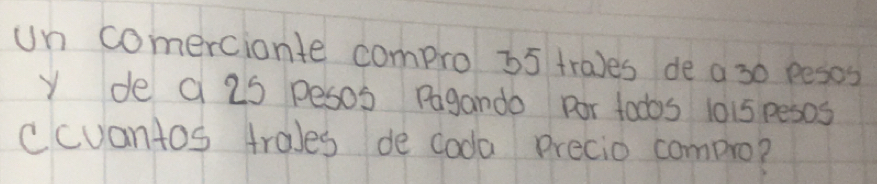 un comerciante compro 35 trajes de a 30 pesos
y de a 25 pesos Pagando por todos 1015 pesos
¿cuantos trajes de cada precio compro?